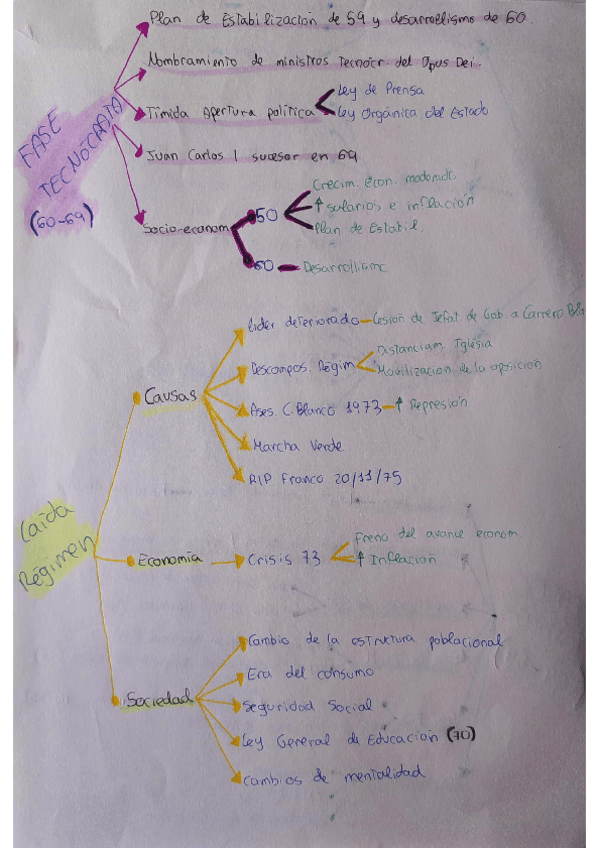 Plan de Estabilización de 59 y desarrollismo de 60.
Nombramiento de ministros Tecnócr. del Opus Dei.
FASE
TECNÓCRATA
(60-69)
Tímida Apertura política
Ley de Prensa
Ley Orgánica del Estado
Juan Carlos I sucesor en 69
Socio-econom
50
Crecim. econ. moderadt.
↑ salarios e inflación
Plan de Estabil.
60
Desarrollismo
Caída
Régimen
Causas
Líder deteriorado
Cesión de Jefat de Gob. a Carrero Bla
Descompos. Régim
Distanciam. Iglesia
Movilización de la oposición
Ases. C. Blanco 1973
↑ Represión
Marcha Verde
RIP Franco 20/11/75
Economía
Crisis 73
Freno del avance econom
↑ Inflación
Sociedad
Cambio de la estructura poblacional
Era del consumo
Seguridad Social
Ley General de Educación (70)
Cambios de mentalidad